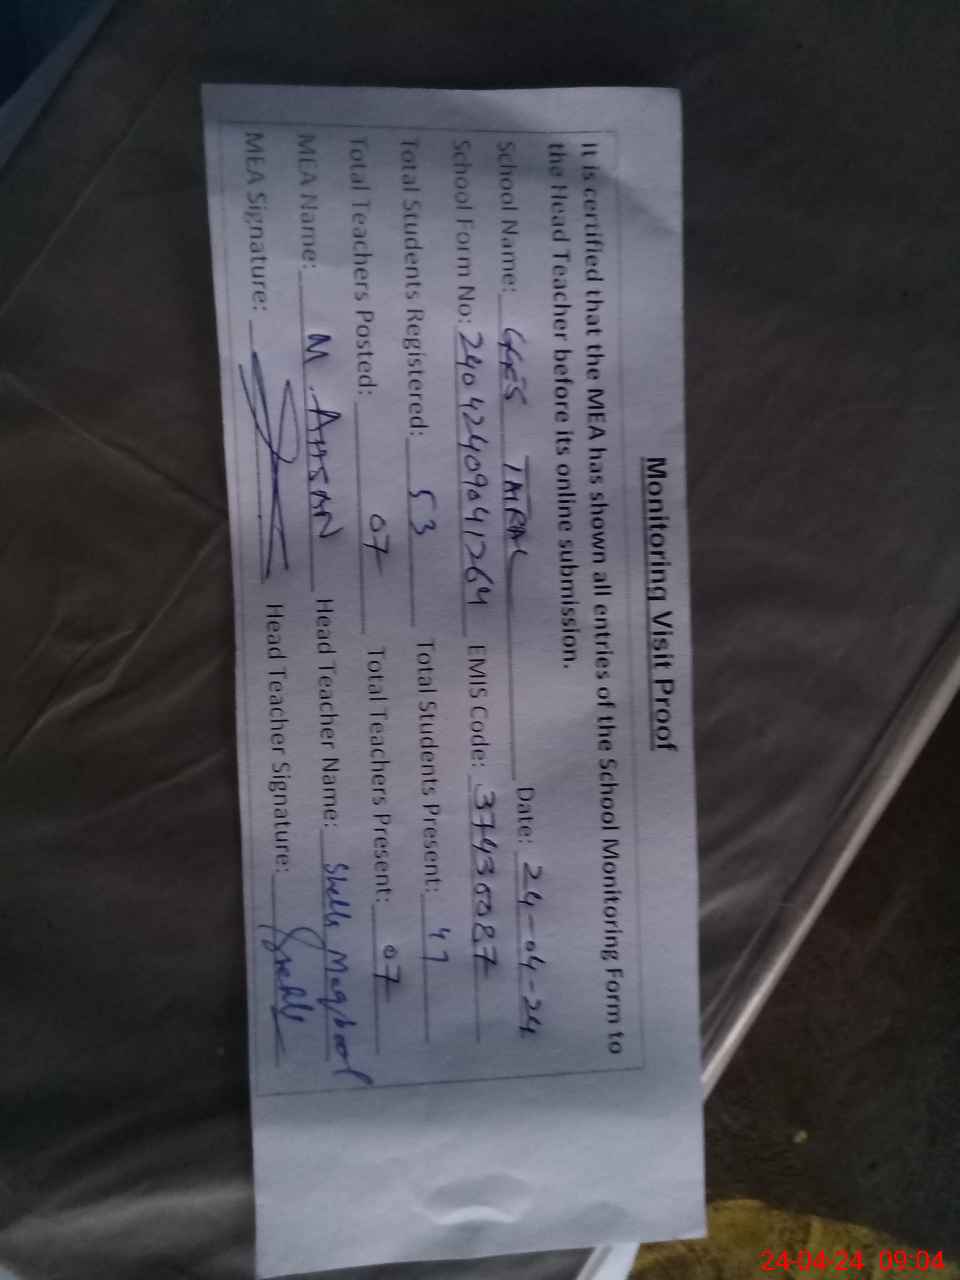 Monitoring Visit Proof
It is certified that the MEA has shown all entries of the School Monitoring Form to
the Head Teacher before its online submission.
School Name: GGES Date: 24-04-24
School Form No: 24042409041264 EMIS Code: 37430087
Total Students Registered: 53 Total Students Present: 41
Total Teachers Posted: 07 Total Teachers Present: 07
MEA Name: M. AHSAN Head Teacher Name: Maqbool
MEA Signature: Head Teacher Signature:
24-04-24 09:04